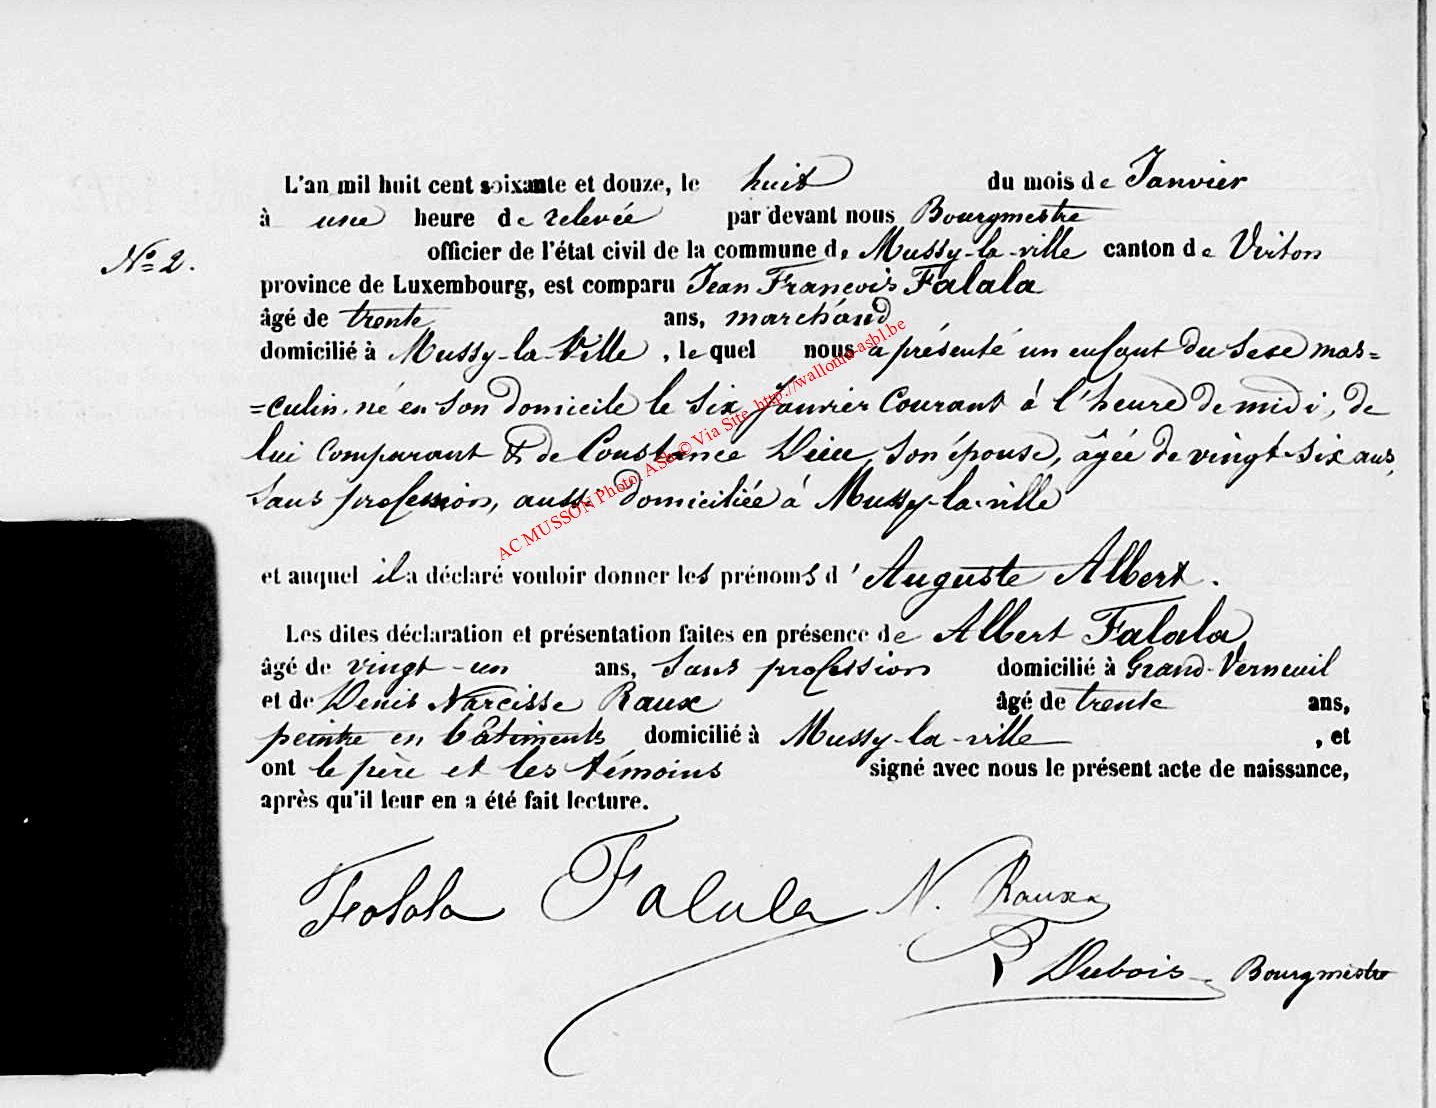 L'an mil huit cent soixante et douze, le huit du mois de Janvier
à une heure de relevée par devant nous Bourgmestre
N° 2.
officier de l'état civil de la commune de Mussy-la-ville canton de Virton
province de Luxembourg, est comparu Jean François Falala
âgé de trente ans, marchand
domicilié à Mussy-la-Ville, le quel nous a présenté un enfant du Sexe mas=
=culin, né en son domicile le six Janvier Courant à l'heure de midi, de
lui Comparant & de Constance Dieu, Son épouse, âgée de vingt-six ans,
Sans profession, aussi domiciliée à Mussy-la-ville
AC MUSSON Photo. ASb © Via Site http://wallonia-asbl.be
et auquel il a déclaré vouloir donner les prénoms d'Auguste Albert.
Les dites déclaration et présentation faites en présence de Albert Falala,
âgé de vingt-un ans, Sans profession domicilié à Grand-Verneuil
et de Denis Narcisse Raux âgé de trente ans,
peintre en bâtiments, domicilié à Mussy-la-ville, et
ont le père et les témoins signé avec nous le présent acte de naissance,
après qu'il leur en a été fait lecture.
Falala Falala N. Raux
Dubois Bourgmestre